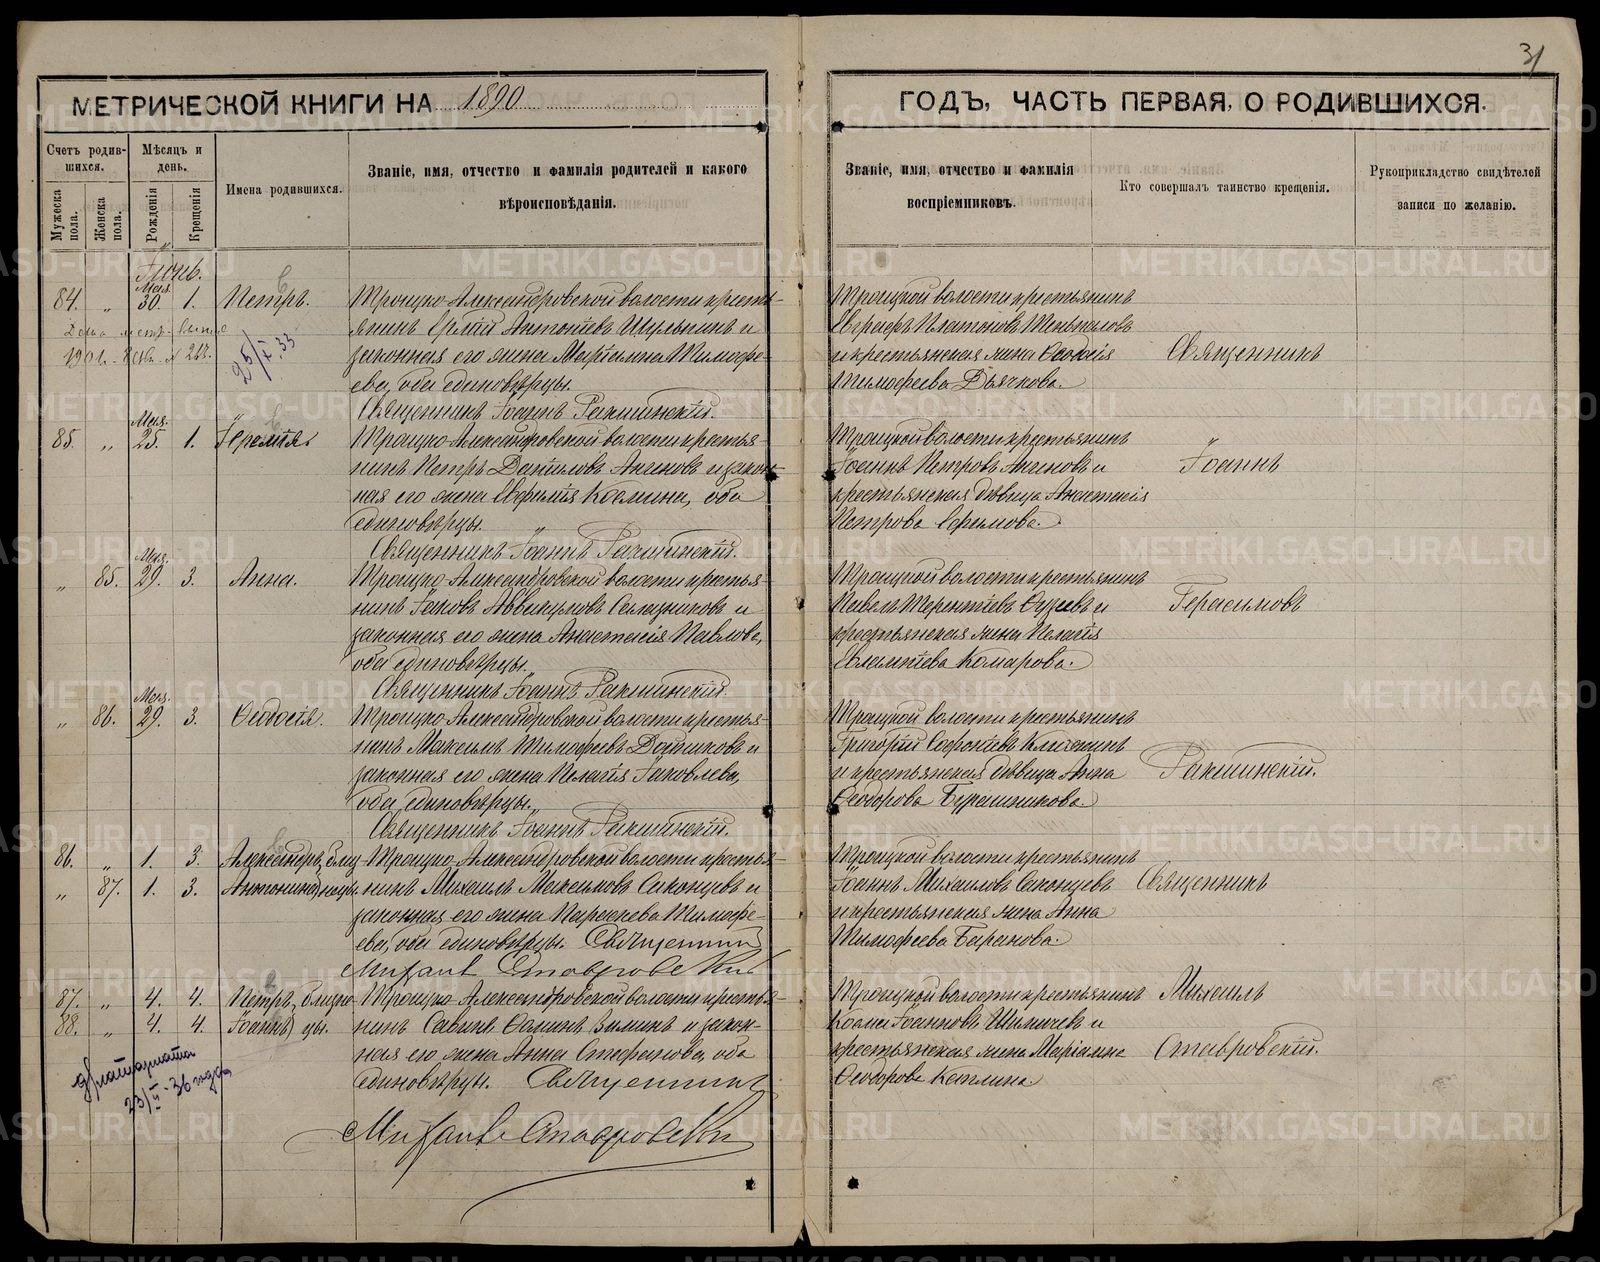 31
МЕТРИЧЕСКОЙ КНИГИ НА 1890
ГОДЪ, ЧАСТЬ ПЕРВАЯ, О РОДИВШИХСЯ.
Счетъ родившихся.
Мужеска пола.
Женска пола.
Мѣсяцъ и день.
Рожденія
Крещенія
Имена родившихся.
Званіе, имя, отчество и фамилія родителей и какого
вѣроисповѣданія.
Званіе, имя, отчество и фамилія
воспріемниковъ.
Кто совершалъ таинство крещенія.
Рукоприкладство свидѣтелей
записи по желанію.
Іюнь.
84. „ Мая 30. 1. Петръ.
25/X.33
Троицко-Александровской волости кресть-
янинъ Антоніевъ Шульгинъ и
законная его жена Маріамна Тимофе-
ева, оба единовѣрцы.
Священникъ Іоаннъ Ракшинскій.
Троицкой волости крестьянинъ
Евграфъ Платоновъ
и крестьянская жена Ѳеодосія
Тимофеева Дьячкова.
85. „ Мая 25. 1. Іеремія
Троицко-Александровской волости крестья-
нинъ Петръ Даниловъ и закон-
ная его жена Евфимія Козмина, оба
единовѣрцы.
Священникъ Іоаннъ Ракшинскій.
Троицкой волости крестьянинъ
Іоаннъ Петровъ и
крестьянская дѣвица Анастасія
Петрова Ефимова.
„ 85. Мая 29. 3. Анна.
Троицко-Александровской волости крестья-
нинъ Іаковъ Аввакумовъ и
законная его жена Анастасія Павлова,
оба единовѣрцы.
Священникъ Іоаннъ Ракшинскій.
Троицкой волости крестьянинъ
Павелъ Терентіевъ и
крестьянская жена Пелагія
Евлампіева Комарова.
„ 86. Мая 29. 3. Ѳеодосія.
Троицко-Александровской волости крестья-
нинъ Максимъ Тимофеевъ и
законная его жена Пелагія Іаковлева,
оба единовѣрцы.
Священникъ Іоаннъ Ракшинскій.
Троицкой волости крестьянинъ
Григорій Софоніевъ
и крестьянская дѣвица Анна
Ѳеодорова
Священникъ
Іоаннъ
Герасимовъ
Ракшинскій.
86. „ 1. 3. Александръ, близ-
„ 87. 1. 3. Антонина, нецы.
Троицко-Александровской волости крестья-
нинъ Михаилъ Максимовъ и
законная его жена Параскева Тимофе-
ева, оба единовѣрцы. Священникъ
Михаилъ Ставровскій
Троицкой волости крестьянинъ
Іоаннъ Михаиловъ
и крестьянская жена Анна
Тимофеева Баранова.
87. „ 4. 4. Петръ, близне-
88. „ 4. 4. Іоаннъ цы.
23/II-36 года
Троицко-Александровской волости крестья-
нинъ Савинъ Зиминъ и закон-
ная его жена Анна Стефанова, оба
единовѣрцы. Священникъ
Михаилъ Ставровскій
Троицкой волости крестьянинъ
Козма Іоанновъ и
крестьянская жена Маріамна
Ѳеодорова
Священникъ
Михаилъ
Ставровскій.
METRIKI.GASO-URAL.RU